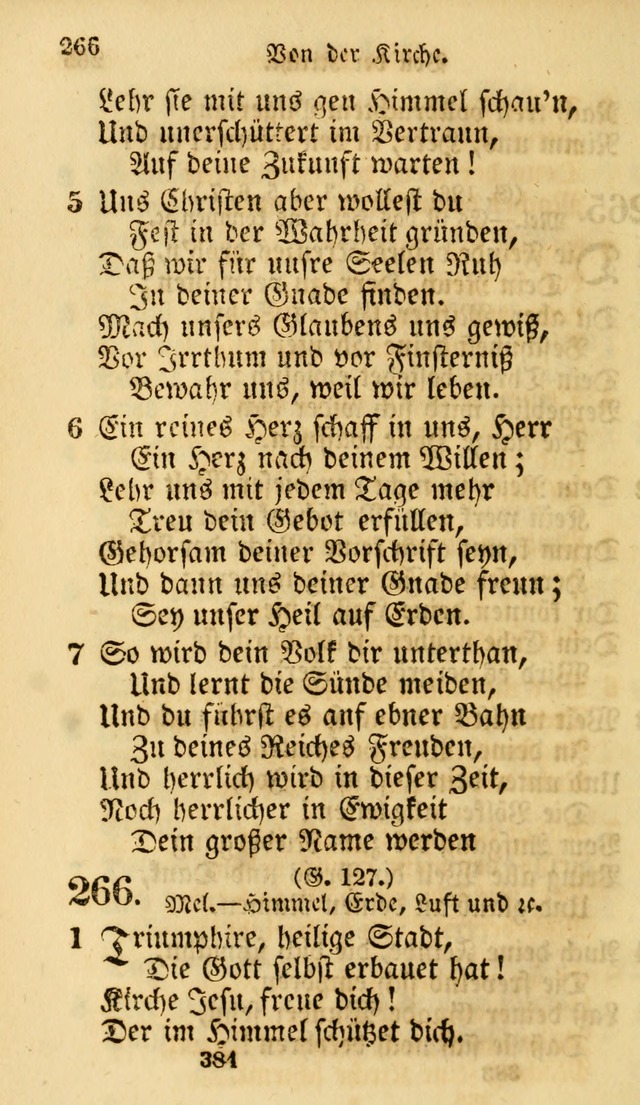 266 Von der Kirche.
Lehr sie mit uns gen Himmel schau'n,
Und unerschüttert im Vertraun,
Auf deine Zukunft warten!
5 Uns Christen aber wollest du
Fest in der Wahrheit gründen,
Daß wir für unsre Seelen Ruh
In deiner Gnade finden.
Mach unsers Glaubens uns gewiß,
Vor Irrthum und vor Finsterniß
Bewahr uns, weil wir leben.
6 Ein reines Herz schaff in uns, Herr
Ein Herz nach deinem Willen;
Lehr uns mit jedem Tage mehr
Treu dein Gebot erfüllen,
Gehorsam deiner Vorschrift seyn,
Und dann uns deiner Gnade freun;
Sey unser Heil auf Erden.
7 So wird dein Volk dir unterthan,
Und lernt die Sünde meiden,
Und du führst es auf ebner Bahn
Zu deines Reiches Freuden,
Und herrlich wird in dieser Zeit,
Noch herrlicher in Ewigkeit
Dein großer Name werden
(G. 127.)
266. Mel.—Himmel, Erde, Luft und ꝛc.
1 Triumphire, heilige Stadt,
Die Gott selbst erbauet hat!
Kirche Jesu, freue dich!
Der im Himmel schützet dich.
384